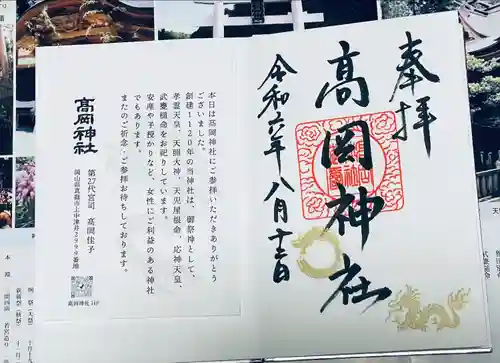 奉拝
高岡神社
令和六年八月十二日
本日は髙岡神社にご参拝いただきありがとう
ございました。
創建1120年の当神社は、御祭神として、
孝霊天皇、天照大神、天児屋根命、応神天皇、
武甕槌命をお祀りしています。
安産や子授かりなど、女性にご利益のある神社
でもあります。
またのご祈念・ご参拝お待ちしております。
髙岡神社
第27代宮司 髙岡佳子
岡山県真庭市上中津井2999番地
髙岡神社 HP